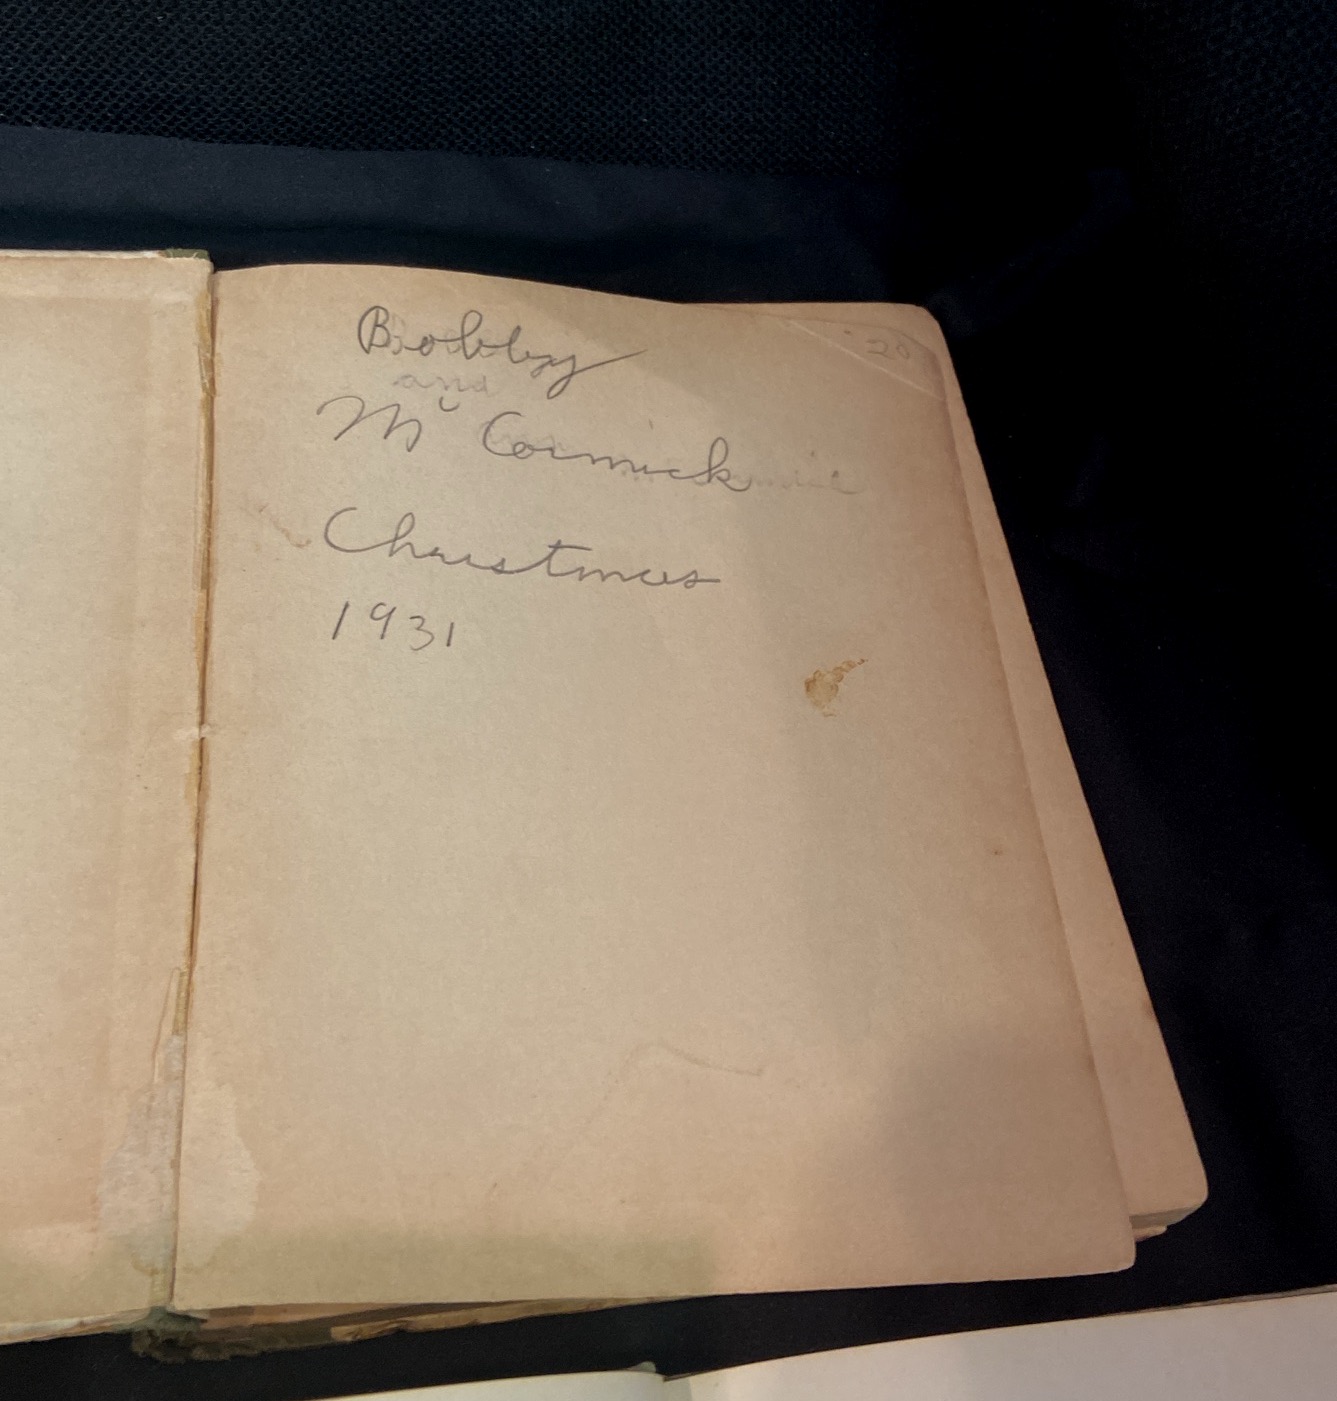 Bobby
and
Mc Cormick
Christmas
1931
20